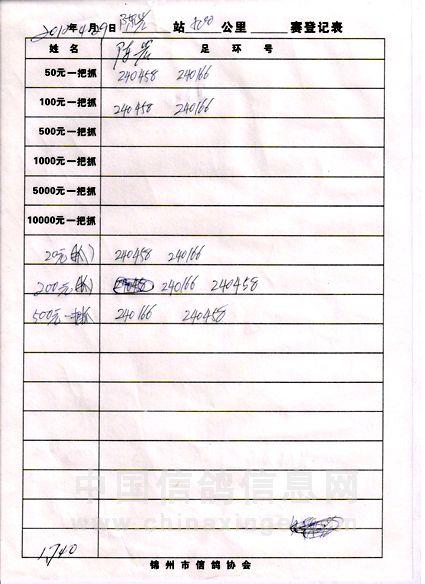 2010年4月29日 站 公里 赛登记表
姓名 足环号
50元一把抓 240458 240166
100元一把抓 240458 240166
500元一把抓
1000元一把抓
5000元一把抓
10000元一把抓
20元 240458 240166
200元 240166 240458
500元一 240166 240458
中国信鸽信息网
1740
锦州市信鸽协会